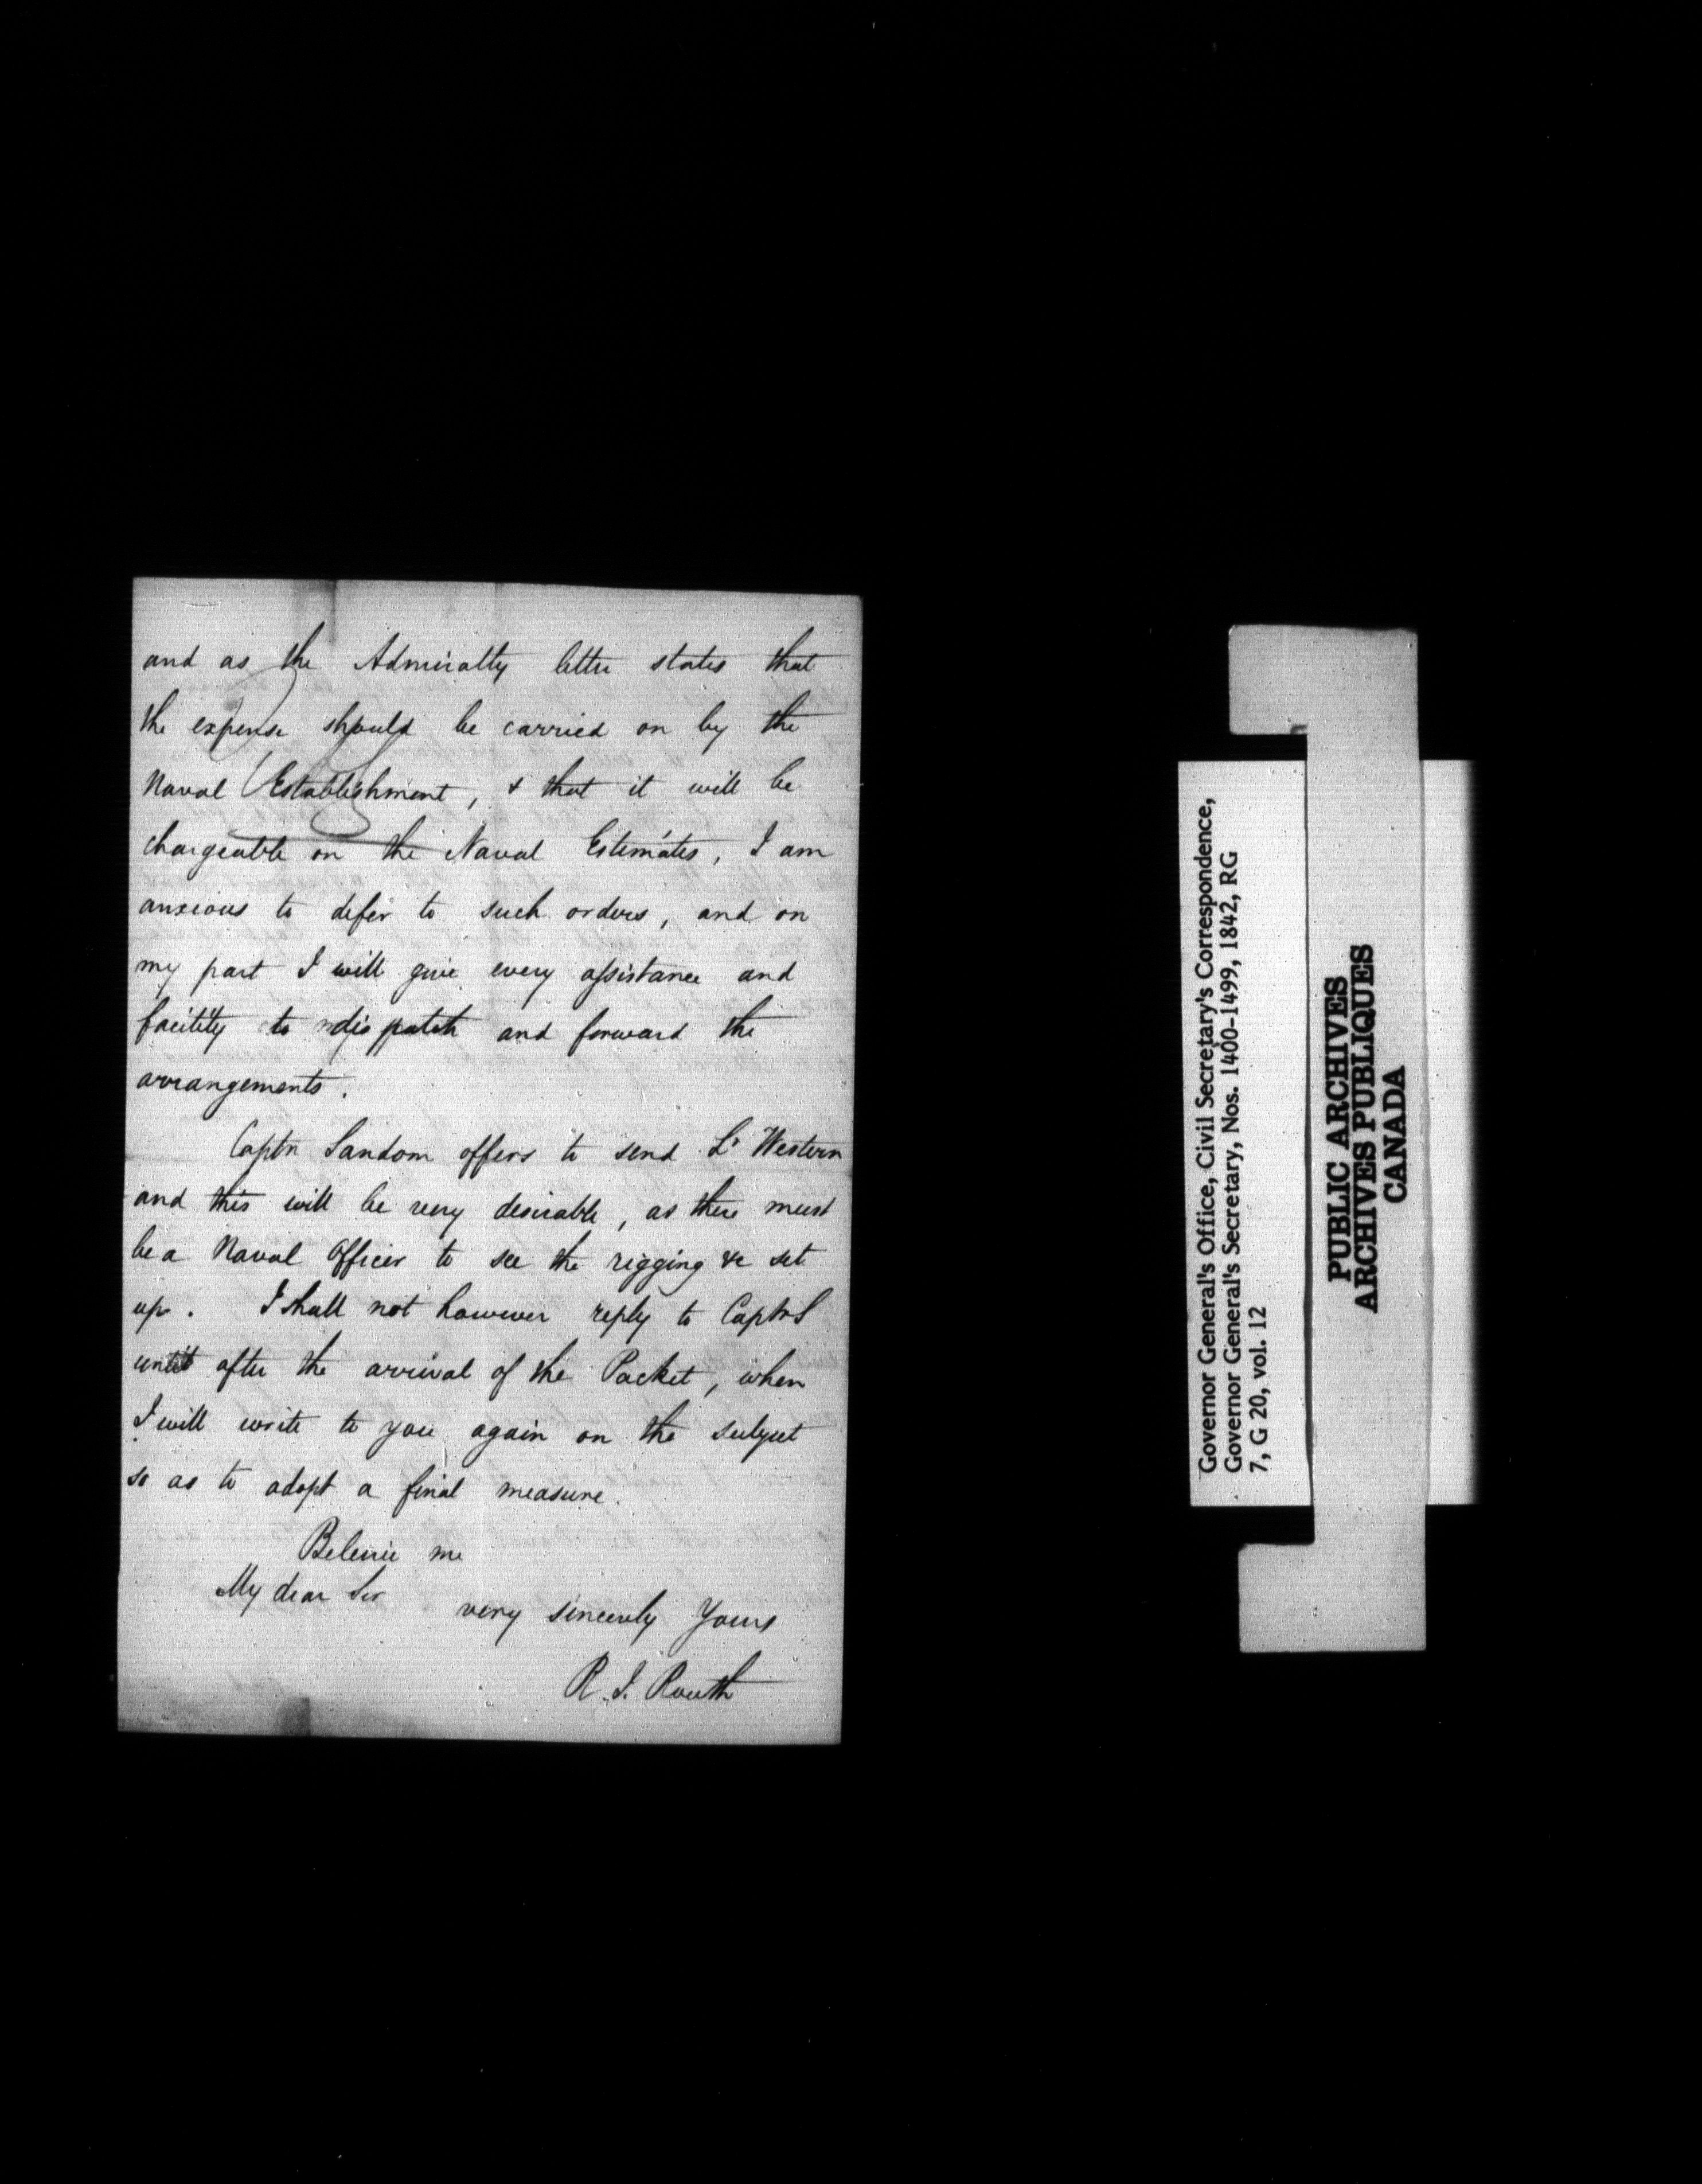 and as the Admiralty letter states that
the expense should be carried on by the
Naval Establishment, & that it will be
chargeable on the Naval Estimates, I am
anxious to defer to such orders, and on
my part I will give every assistance and
facility to dispatch and forward the
arrangements.
Captn Sandom offers to send Lt Western
and this will be very desirable, as there must
be a Naval Officer to see the rigging &c set
up. I shall not however reply to Captn S
until after the arrival of the Packet, when
I will write to you again on the subject
so as to adopt a final measure.
Believe me
My dear Sir
very sincerely Yours
R. I. Routh
Governor General's Office, Civil Secretary's Correspondence,
Governor General's Secretary, Nos. 1400-1499, 1842, RG
7, G 20, vol. 12
PUBLIC ARCHIVES
ARCHIVES PUBLIQUES
CANADA